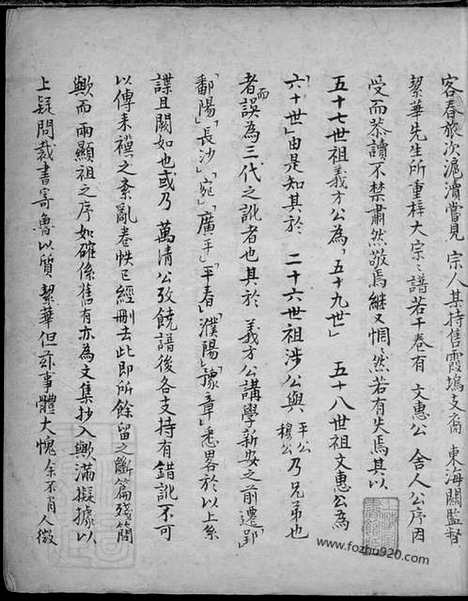 客春旅次滬瀆嘗見 宗人某持售霞塢支裔 東海關監督
絜華先生所重梓大宗之譜若干卷有 文惠公 舍人公序因
受而恭讀不禁肅然敬焉繼又惘然若有失焉其以
五十七世祖義方公為「五十九世」 五十八世祖文惠公為
「六十世」由是知其於 二十六世祖涉公與平公穆公乃兄弟也
者而誤為三代之訛者也其於 義方公講學新安之前遷郢
「鄱陽」「長沙」「宛」「廣平」「平春」「濮陽」「豫章」悉畧於以上系
譜且闕如也或乃 萬清公攷饒譜後各支持有錯訛不可
以傳未禩之紊亂卷帙已經刪去此即所餘留之斷篇殘簡
歟而兩顯祖之序如確係售有亦為文集抄入歟滿擬據以
上疑問裁書寄魯以質 絜華但茲事體大愧余不肖人微
www.fozhu920.com